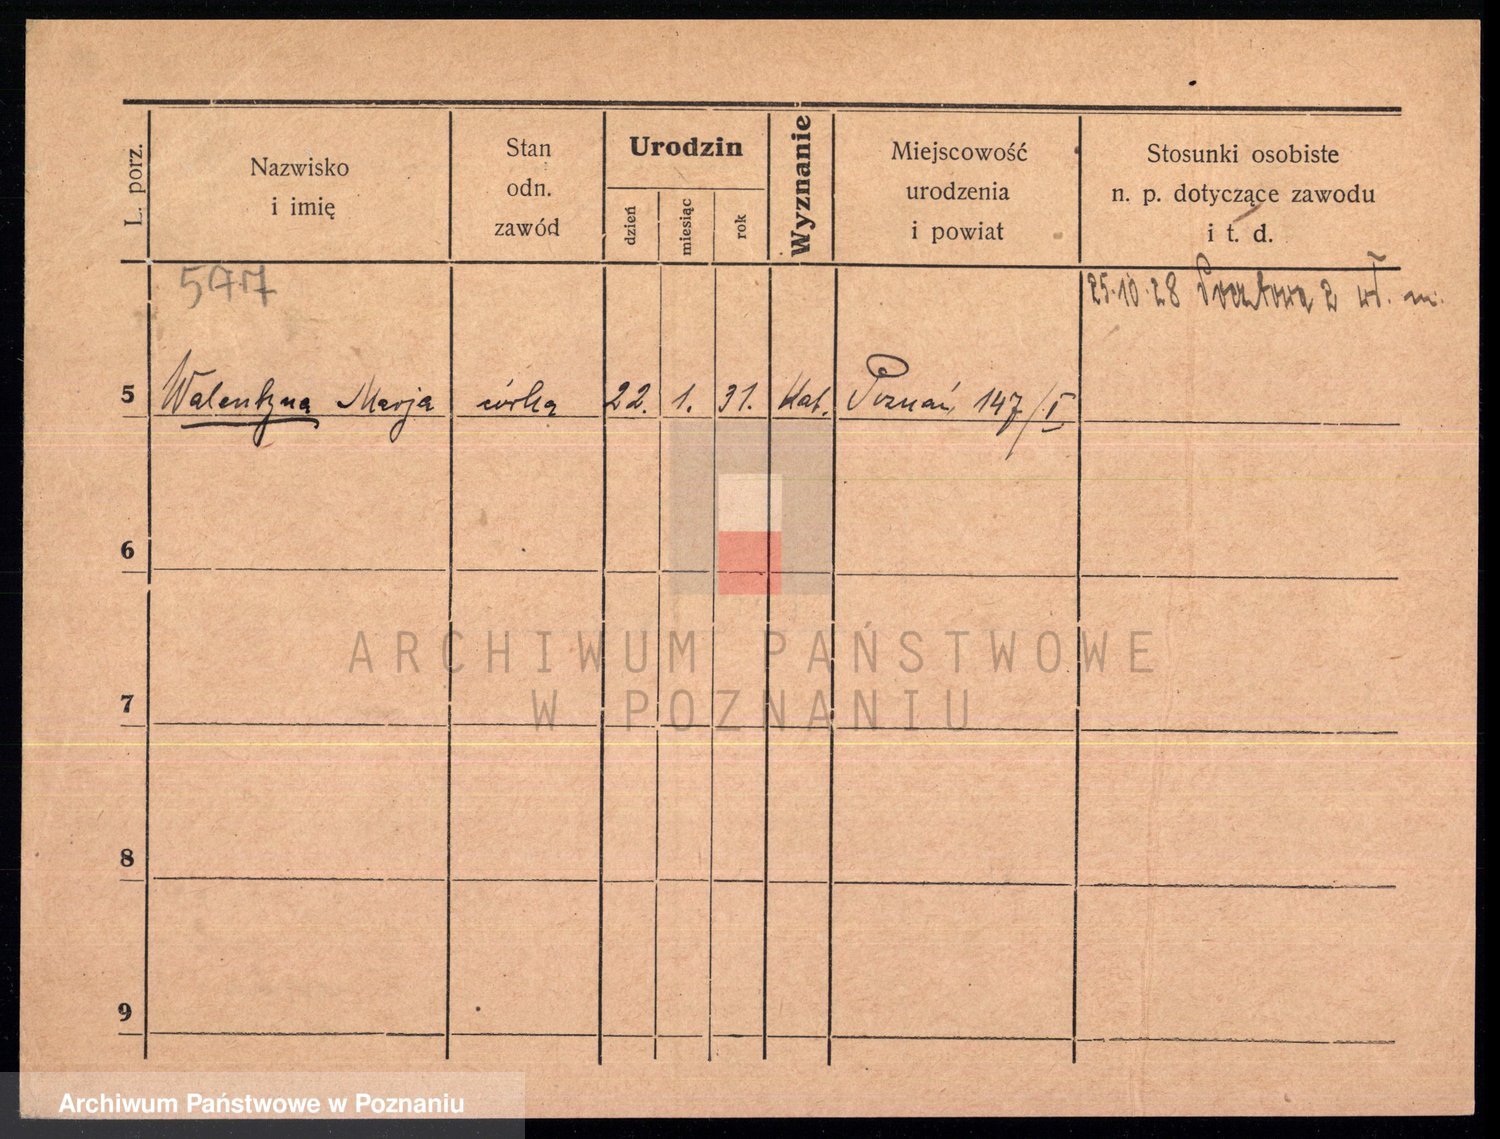 L. porz.
Nazwisko
i imię
Stan
odn.
zawód
Urodzin
dzień
miesiąc
rok
Wyznanie
Miejscowość
urodzenia
i powiat
Stosunki osobiste
n. p. dotyczące zawodu
i t. d.
577
25.10.28 Pocztowa 2 wł. m.
5 Walentyna Marja córka 22. 1. 31. Kat. Poznań 147/I
6
ARCHIWUM PAŃSTWOWE
W POZNANIU
7
8
9
Archiwum Państwowe w Poznaniu